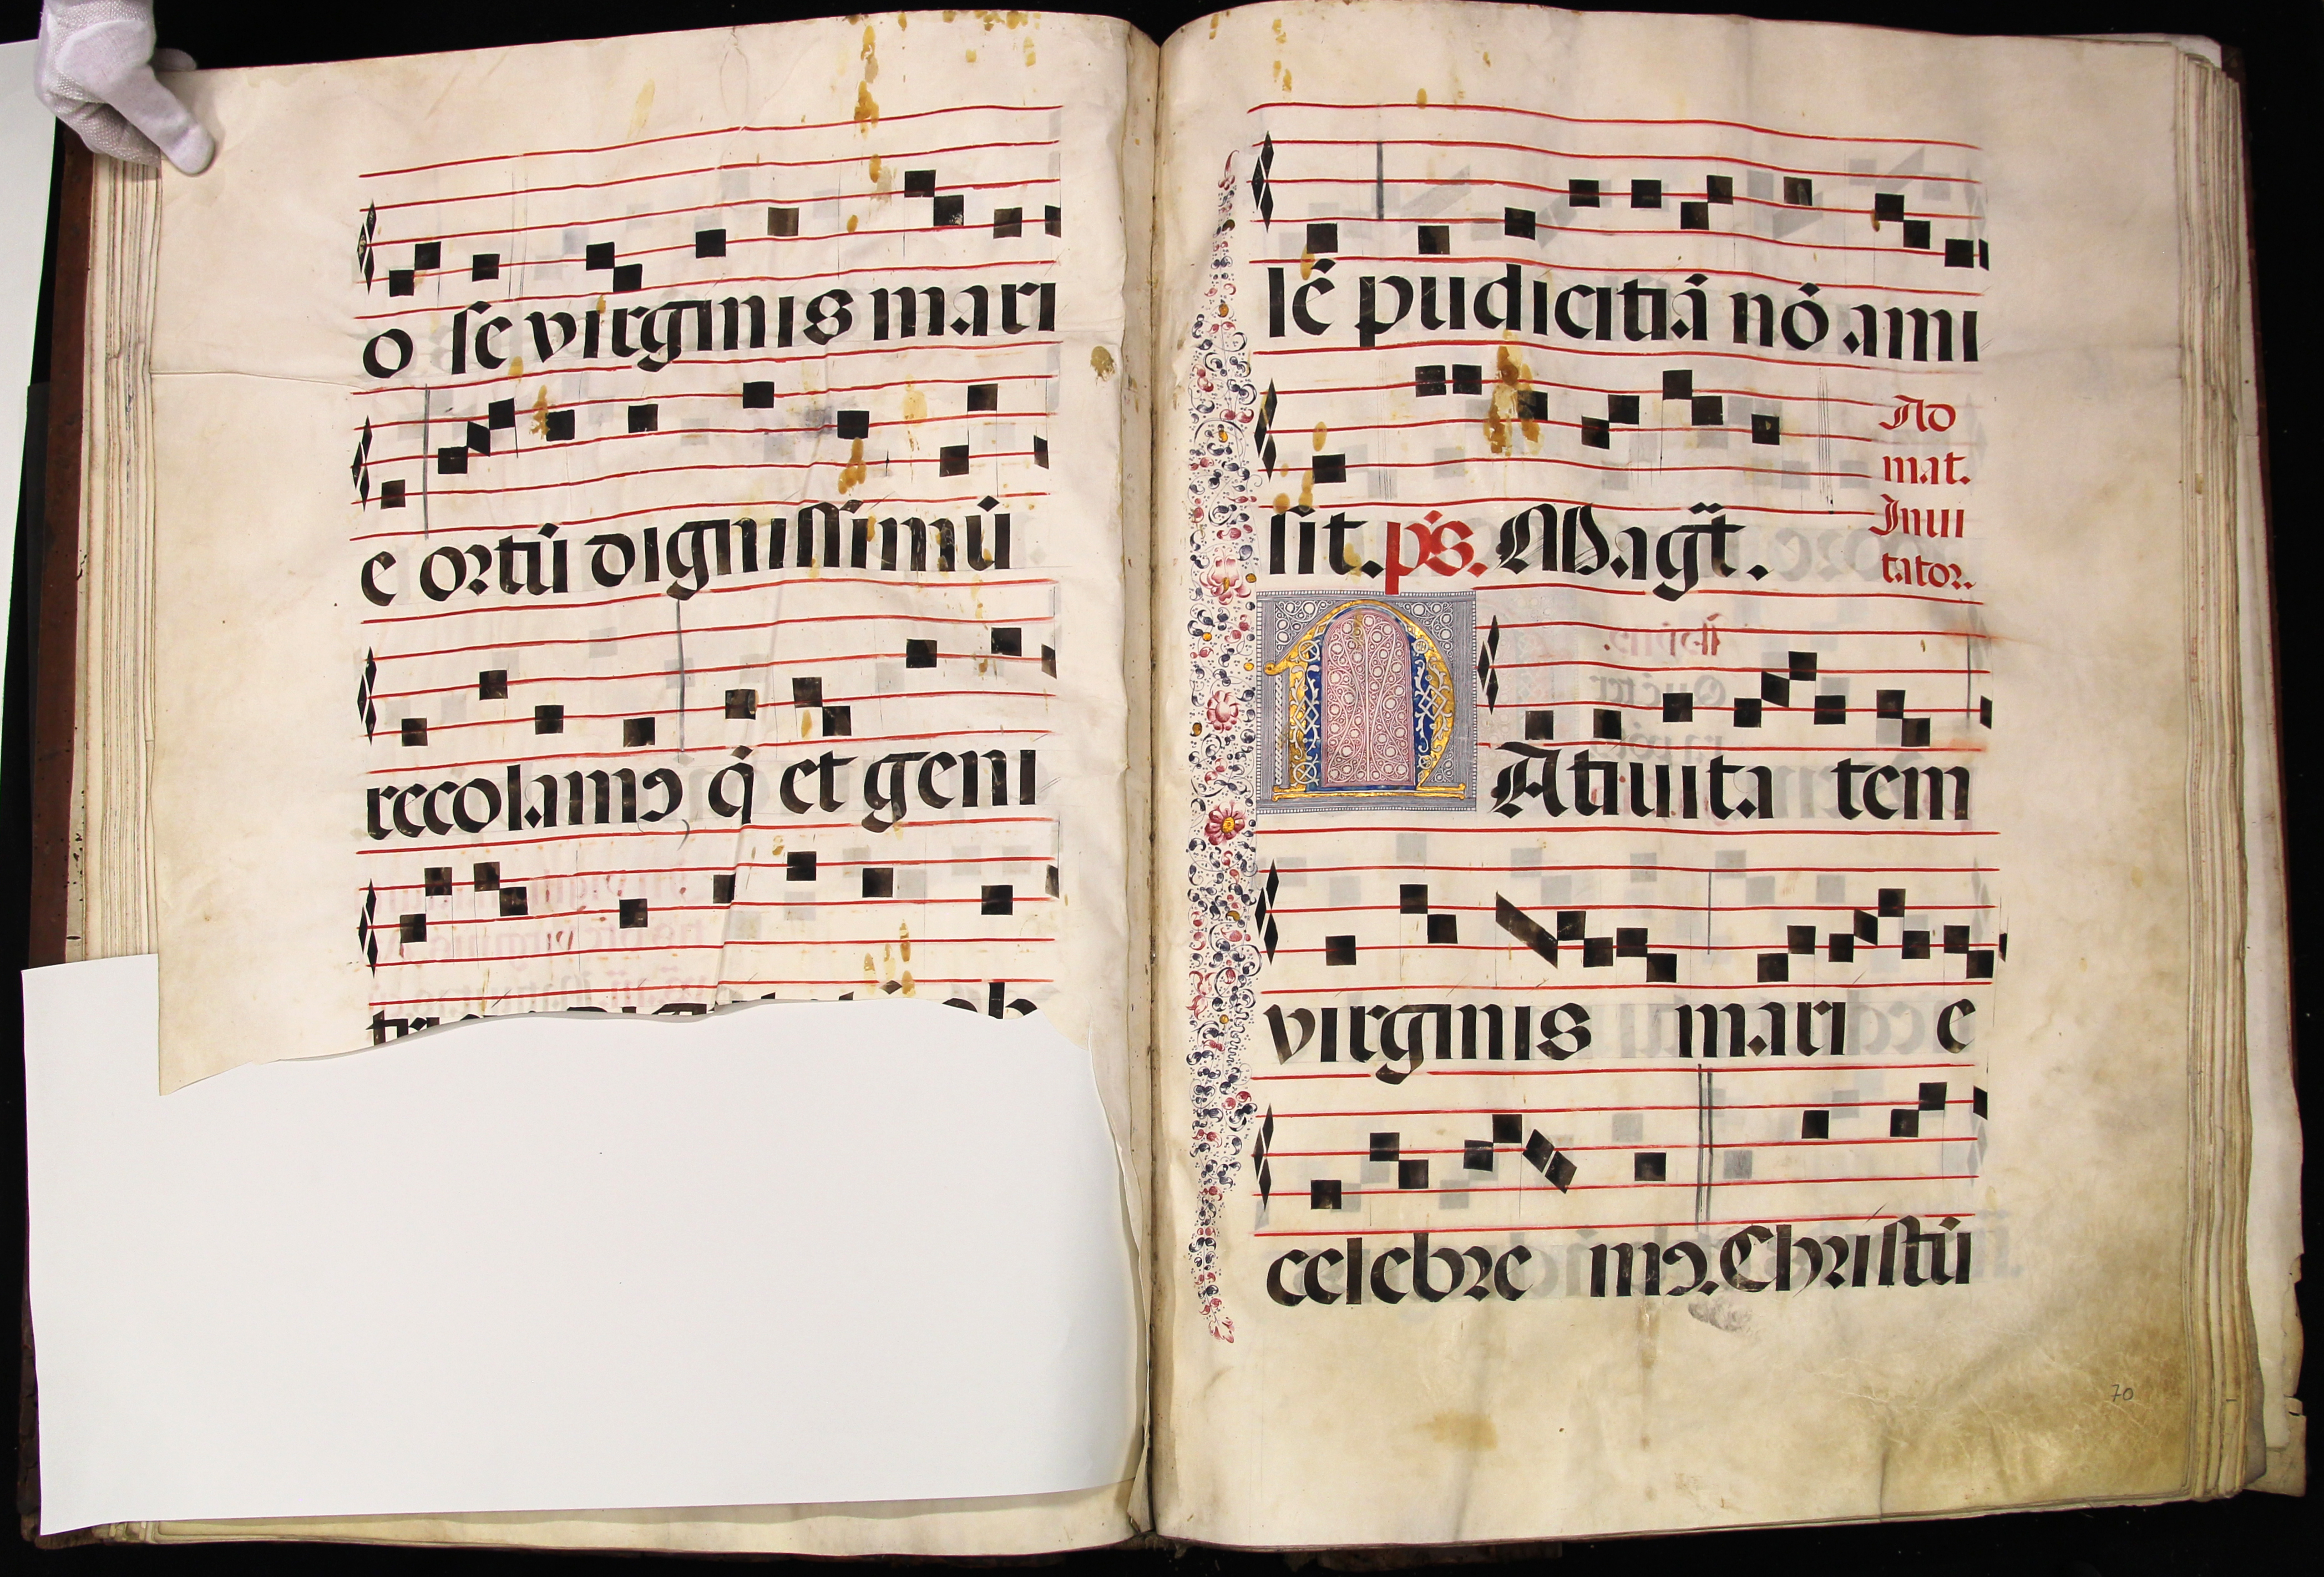 o se virginis mari
e ortū dignissimū
recolamꝰ q̇ et geni
lē pudicitiā nō ami
sit. p̄s. Magt̄.
Ad
mat.
Inui
tator.
NAtiuita tem
virginis mari e
celebre mꝰ. Christū
70